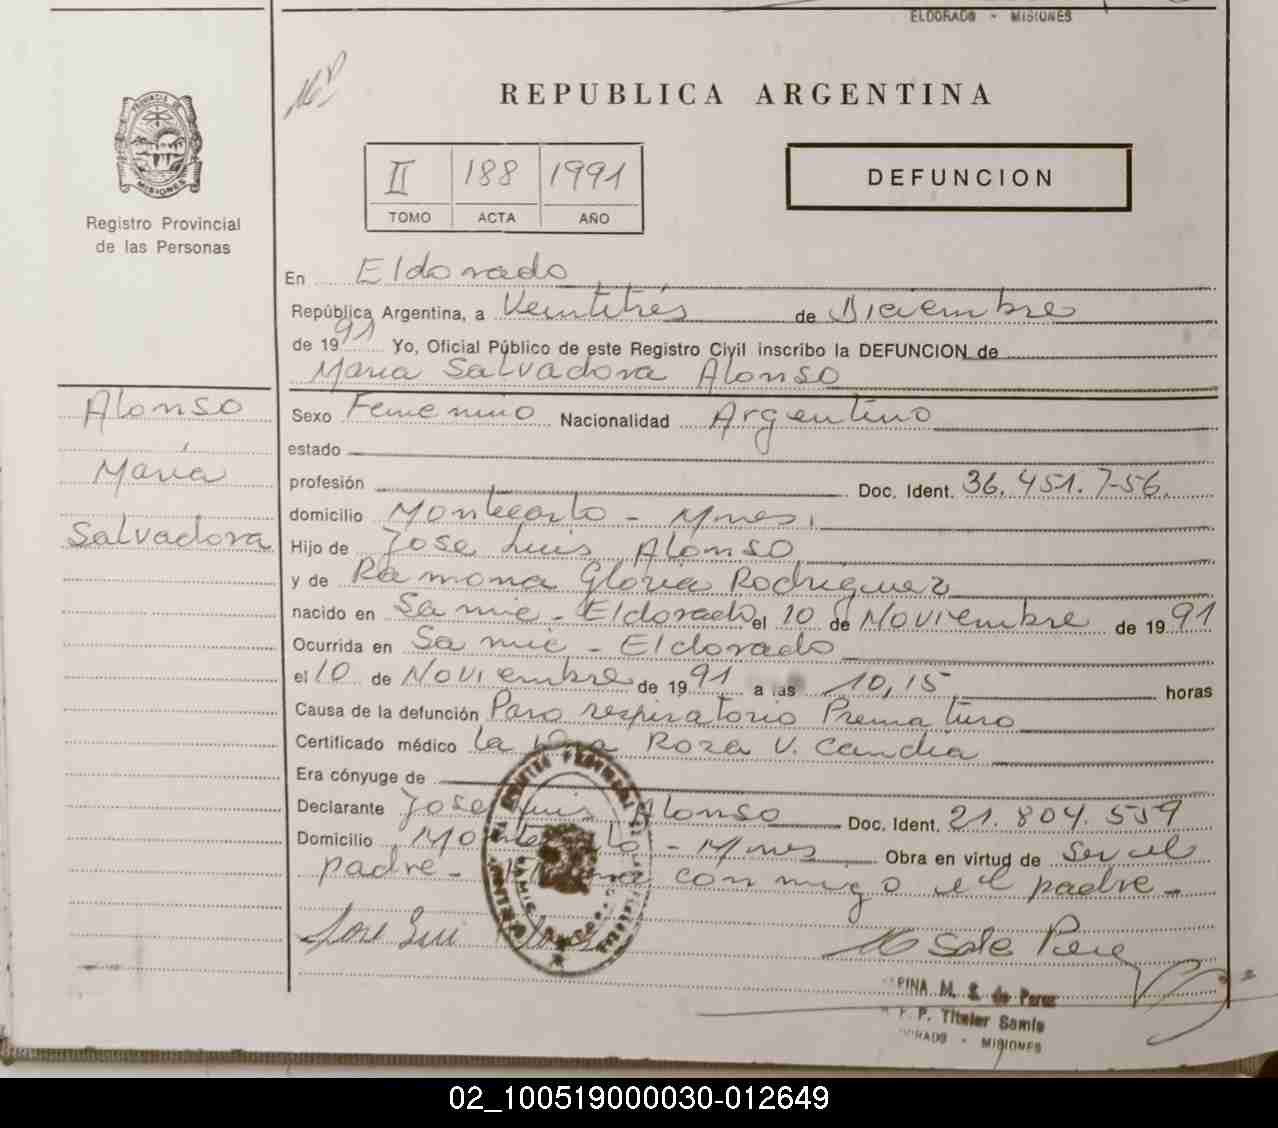 ELDORADO - MISIONES
REPUBLICA ARGENTINA
PROVINCIA DE
MISIONES
Registro Provincial
de las Personas
II 188 1991
TOMO ACTA AÑO
DEFUNCION
En Eldorado
República Argentina, a Veintitrés de Diciembre
de 1991 Yo, Oficial Público de este Registro Civil inscribo la DEFUNCION de
María Salvadora Alonso
Alonso
María
Salvadora
Sexo Femenino Nacionalidad Argentino
estado
profesión Doc. Ident. 36.451.756
domicilio Montecarlo - Mnes.
Hijo de Jose Luis Alonso
y de Ramona Gloria Rodriguez
nacido en Samic - Eldorado el 10 de Noviembre de 1991
Ocurrida en Samic - Eldorado
el 10 de Noviembre de 1991 a las 10,15 horas
Causa de la defunción Paro respiratorio Prematuro
Certificado médico la Dra Roza V. Candia
Era cónyuge de
Declarante Jose Luis Alonso Doc. Ident. 21.804.559
Domicilio Montecarlo - Mnes Obra en virtud de ser el
padre - Firma conmigo el padre -
Jose Luis Alonso
M Sole Perez
PINA M. S. de Perez
P. Titular Samic
DORADO - MISIONES
02_100519000030-012649